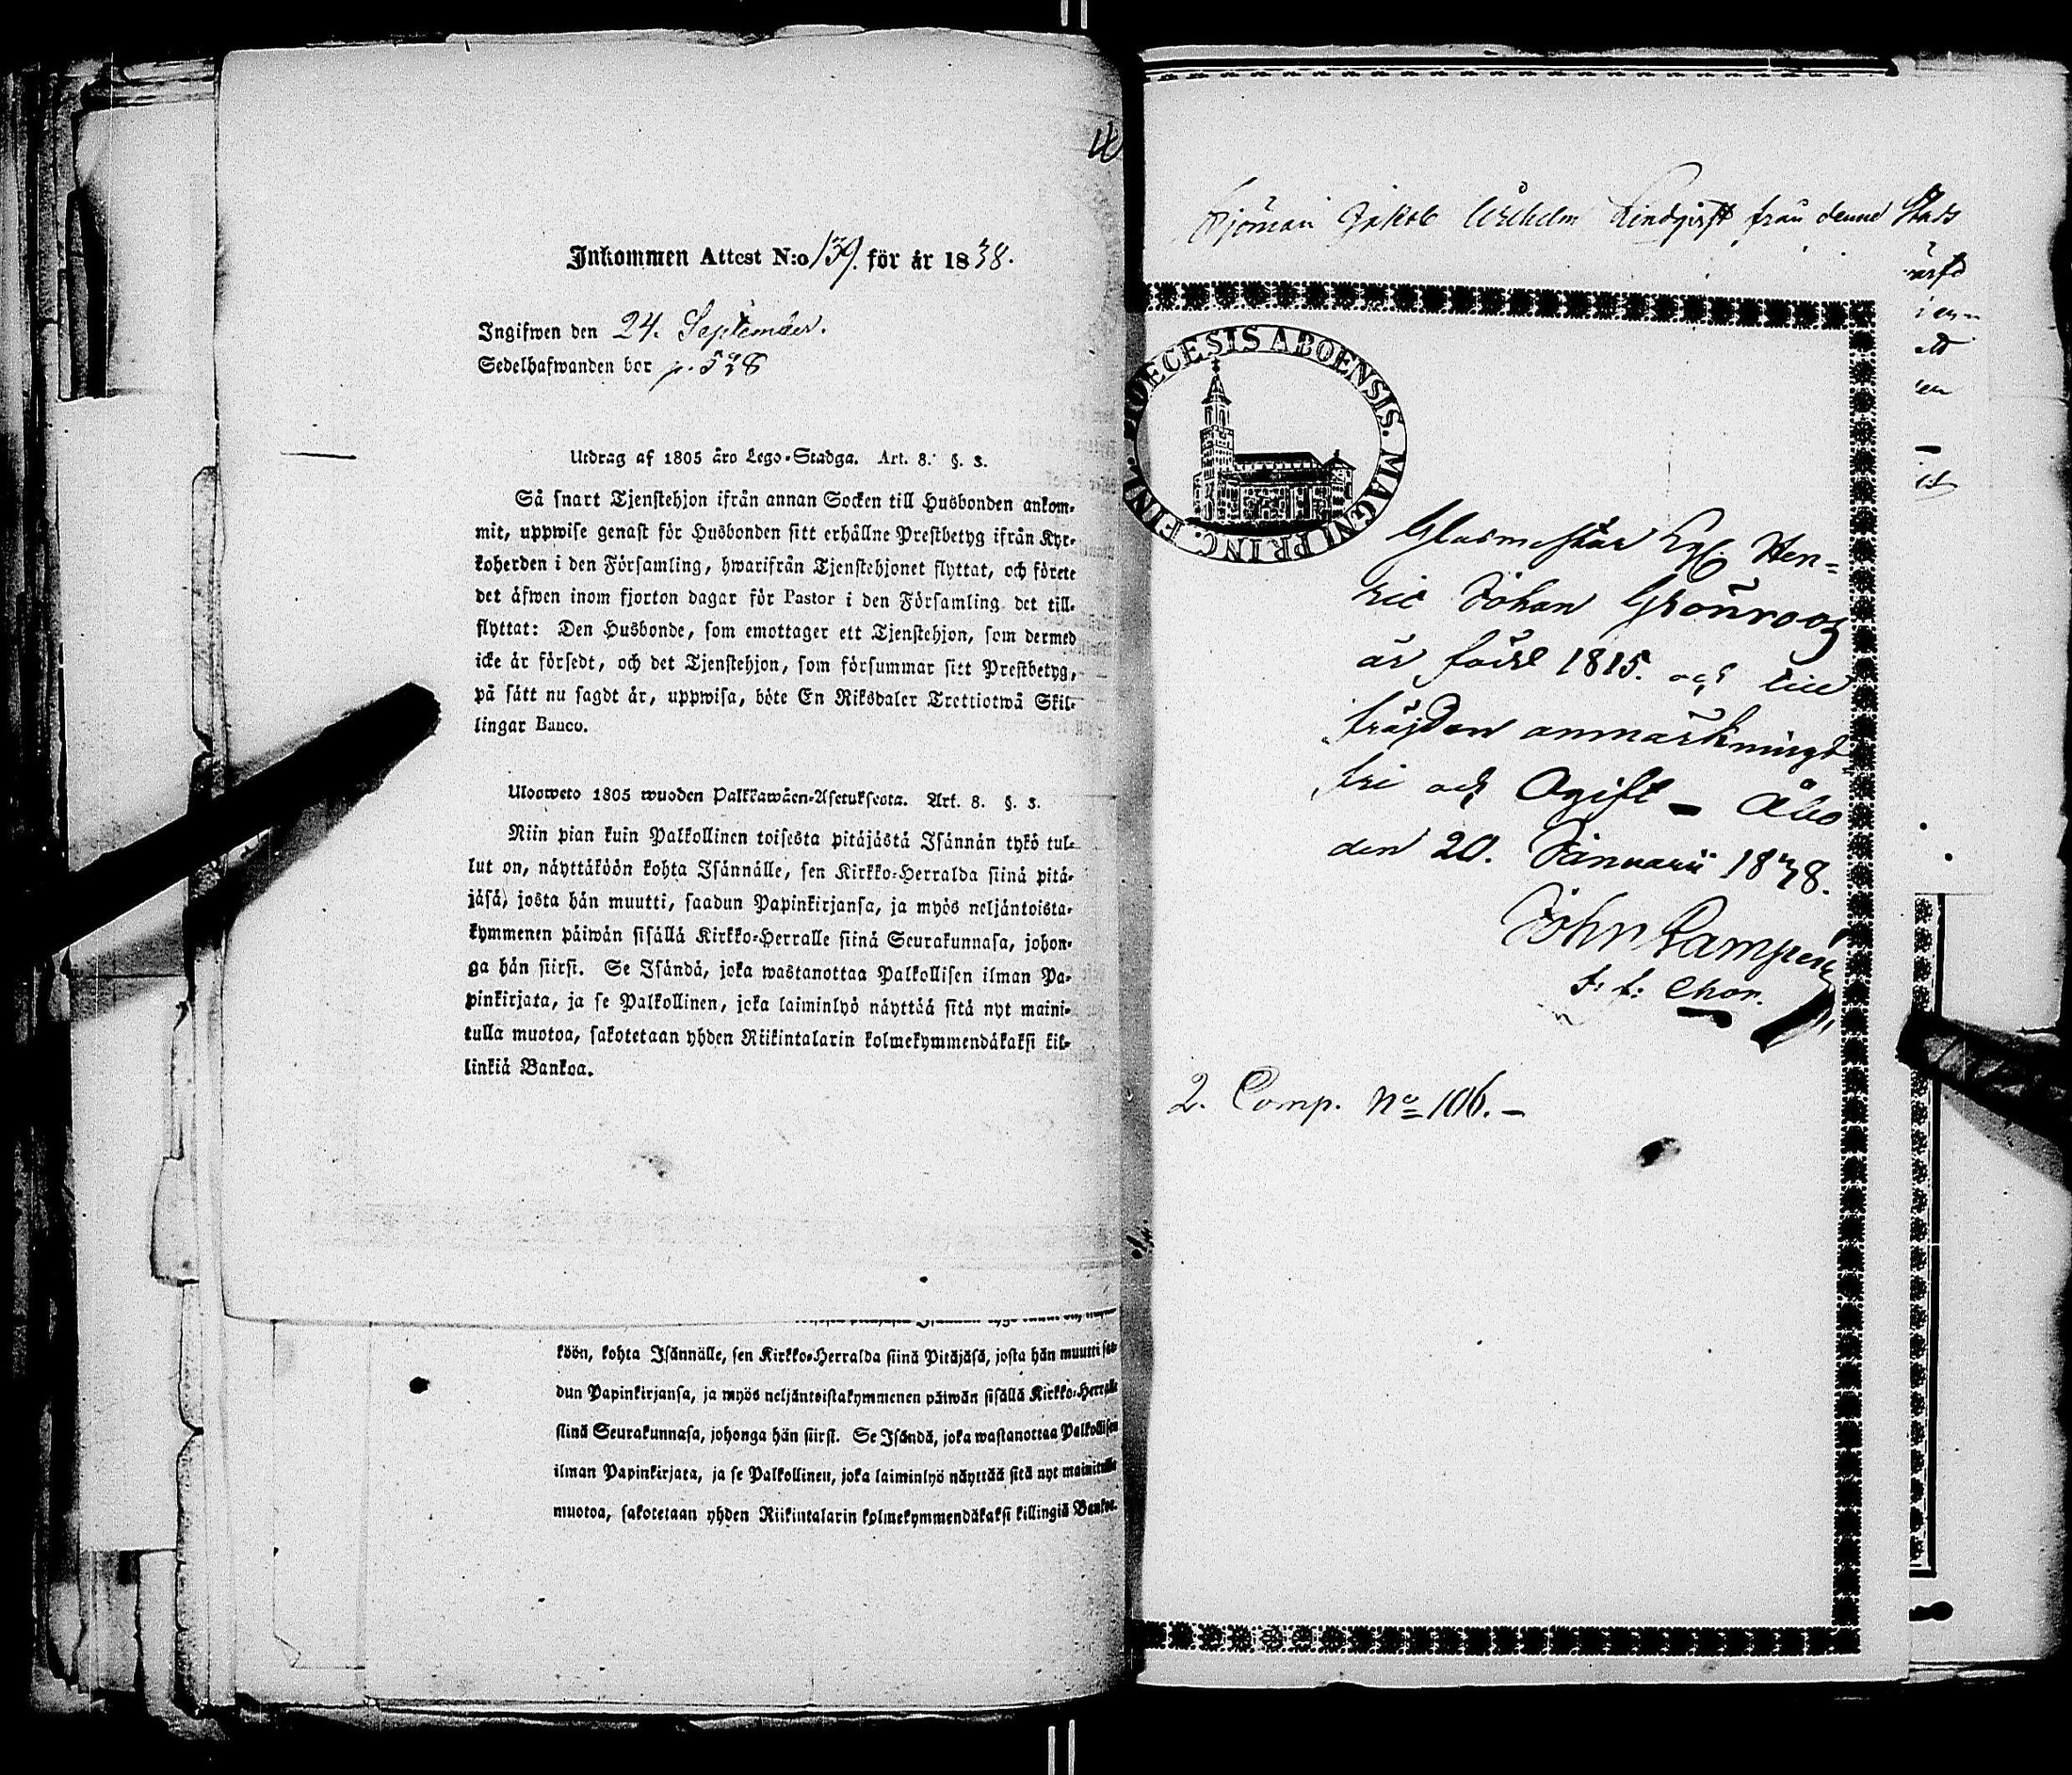 Inkommen Attest N:o 139. för år 1838.
Ingifwen den 24. September.
Sedelhafwanden bor p. 528
Utdrag af 1805 års Lego-Stadga. Art. 8. §. 3.
Så snart Tjenstehjon ifrån annan Socken till Husbonden ankom-
mit, uppwise genast för Husbonden sitt erhållne Prestbetyg ifrån Kyr-
koherden i den Församling, hwarifrån Tjenstehjonet flyttat, och förete
det äfwen inom fjorton dagar för Pastor i den Församling det till-
flyttat: Den Husbonde, som emottager ett Tjenstehjon, som dermed
icke är försedt, och det Tjenstehjon, som försummar sitt Prestbetyg,
på sätt nu sagdt är, uppwisa, böte En Riksdaler Trettiotwå Skil-
lingar Banco.
Ulosweto 1805 wuoden Palkkawäen-Asetuksesta. Art. 8. §. 3.
Niin pian kuin Palkollinen toisesta pitäjästä Isännän tykö tul-
lut on, näyttäköön kohta Isännälle, sen Kirkko-Herralda siinä pitä-
jäsä, josta hän muutti, saadun Papinkirjansa, ja myös neljäntoista-
kymmenen päiwän sisällä Kirkko-Herralle siinä Seurakunnasa, johon-
ga hän siirsi. Se Isändä, joka wastanottaa Palkollisen ilman Pa-
pinkirjata, ja se Palkollinen, joka laiminlyö näyttää sitä nyt maini-
tulla muotoa, sakotetaan yhden Riikintalarin kolmekymmendäkaksi kil-
linkiä Bankoa.
köön, kohta Isännälle, sen Kirkko-Herralda siinä Pitäjäsä, josta hän muutti saa-
dun Papinkirjansa, ja myös neljäntoistakymmenen päiwän sisällä Kirkko-Herralle
siinä Seurakunnasa, johonga hän siirsi. Se Isändä, joka wastanottaa Palkollisen
ilman Papinkirjata, ja se Palkollinen, joka laiminlyö näyttää sitä nyt mainitulla
muotoa, sakotetaan yhden Riikintalarin kolmekymmendäkaksi killingiä Bankot.
Sjöman Jakob Wilhelm Lindqvist från denne Stads
DIOECESIS ABOENSIS. MAGNI PRINC. FINL.
Glasmästar Hen-
ric Johan Grönroos
är född 1815. och till
frägden anmärknings-
fri och Ogift – Åbo
den 20. Januarii 1838.
John Lampén
t. f. Chor.
2. Comp. No 106. –